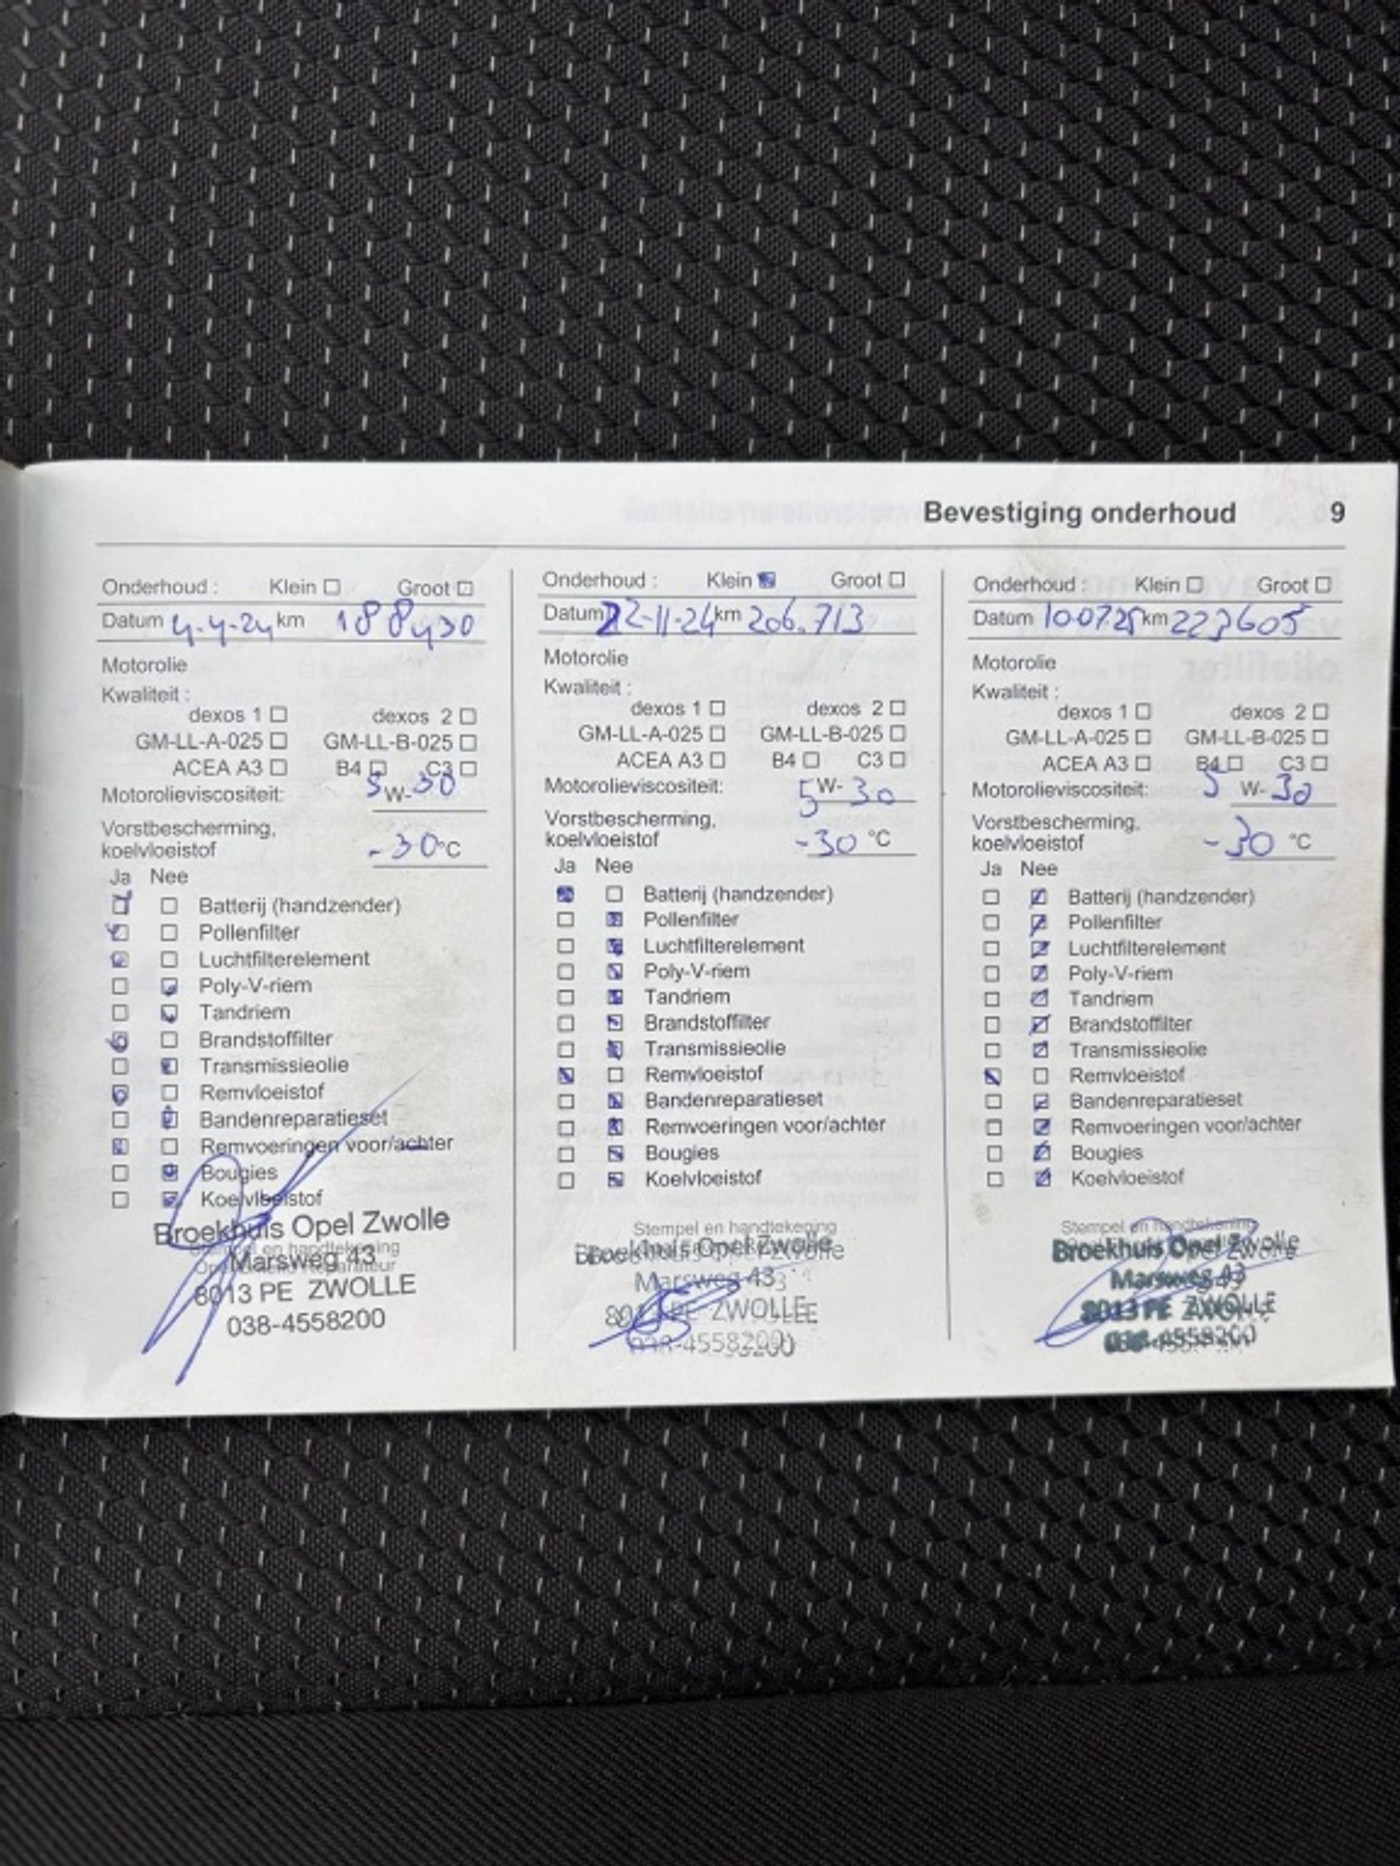 Bevestiging onderhoud 9
Onderhoud : Klein ☐ Groot ☑
Datum 4-4-24 km 188430
Motorolie
Kwaliteit :
dexos 1 ☐ dexos 2 ☐
GM-LL-A-025 ☐ GM-LL-B-025 ☐
ACEA A3 ☐ B4 ☐ C3 ☐
Motorolieviscositeit: 5 W- 30
Vorstbescherming,
koelvloeistof -30 °C
Ja Nee
☑ ☐ Batterij (handzender)
☑ ☐ Pollenfilter
☑ ☐ Luchtfilterelement
☐ ☑ Poly-V-riem
☐ ☑ Tandriem
☑ ☐ Brandstoffilter
☐ ☑ Transmissieolie
☑ ☐ Remvloeistof
☐ ☑ Bandenreparatieset
☑ ☐ Remvoeringen voor/achter
☐ ☑ Bougies
☐ ☑ Koelvloeistof
Broekhuis Opel Zwolle
Stempel en handtekening
Marsweg 43
8013 PE ZWOLLE
038-4558200
Onderhoud : Klein ☑ Groot ☐
Datum 22-11-24 km 206.713
Motorolie
Kwaliteit :
dexos 1 ☐ dexos 2 ☐
GM-LL-A-025 ☐ GM-LL-B-025 ☐
ACEA A3 ☐ B4 ☐ C3 ☐
Motorolieviscositeit: 5 W- 30
Vorstbescherming,
koelvloeistof -30 °C
Ja Nee
☑ ☐ Batterij (handzender)
☐ ☑ Pollenfilter
☐ ☑ Luchtfilterelement
☐ ☑ Poly-V-riem
☐ ☑ Tandriem
☐ ☑ Brandstoffilter
☐ ☑ Transmissieolie
☑ ☐ Remvloeistof
☐ ☑ Bandenreparatieset
☐ ☑ Remvoeringen voor/achter
☐ ☑ Bougies
☐ ☑ Koelvloeistof
Stempel en handtekening
Broekhuis Opel Zwolle
Marsweg 43
8013 PE ZWOLLE
038-4558200
Onderhoud : Klein ☐ Groot ☐
Datum 10-07-25 km 223605
Motorolie
Kwaliteit :
dexos 1 ☐ dexos 2 ☐
GM-LL-A-025 ☐ GM-LL-B-025 ☐
ACEA A3 ☐ B4 ☐ C3 ☐
Motorolieviscositeit: 5 W- 30
Vorstbescherming,
koelvloeistof -30 °C
Ja Nee
☐ ☑ Batterij (handzender)
☐ ☑ Pollenfilter
☐ ☑ Luchtfilterelement
☐ ☑ Poly-V-riem
☐ ☑ Tandriem
☐ ☑ Brandstoffilter
☐ ☑ Transmissieolie
☑ ☐ Remvloeistof
☐ ☑ Bandenreparatieset
☐ ☑ Remvoeringen voor/achter
☐ ☑ Bougies
☐ ☑ Koelvloeistof
Stempel en handtekening
Broekhuis Opel Zwolle
Marsweg 43
8013 PE ZWOLLE
038-4558200